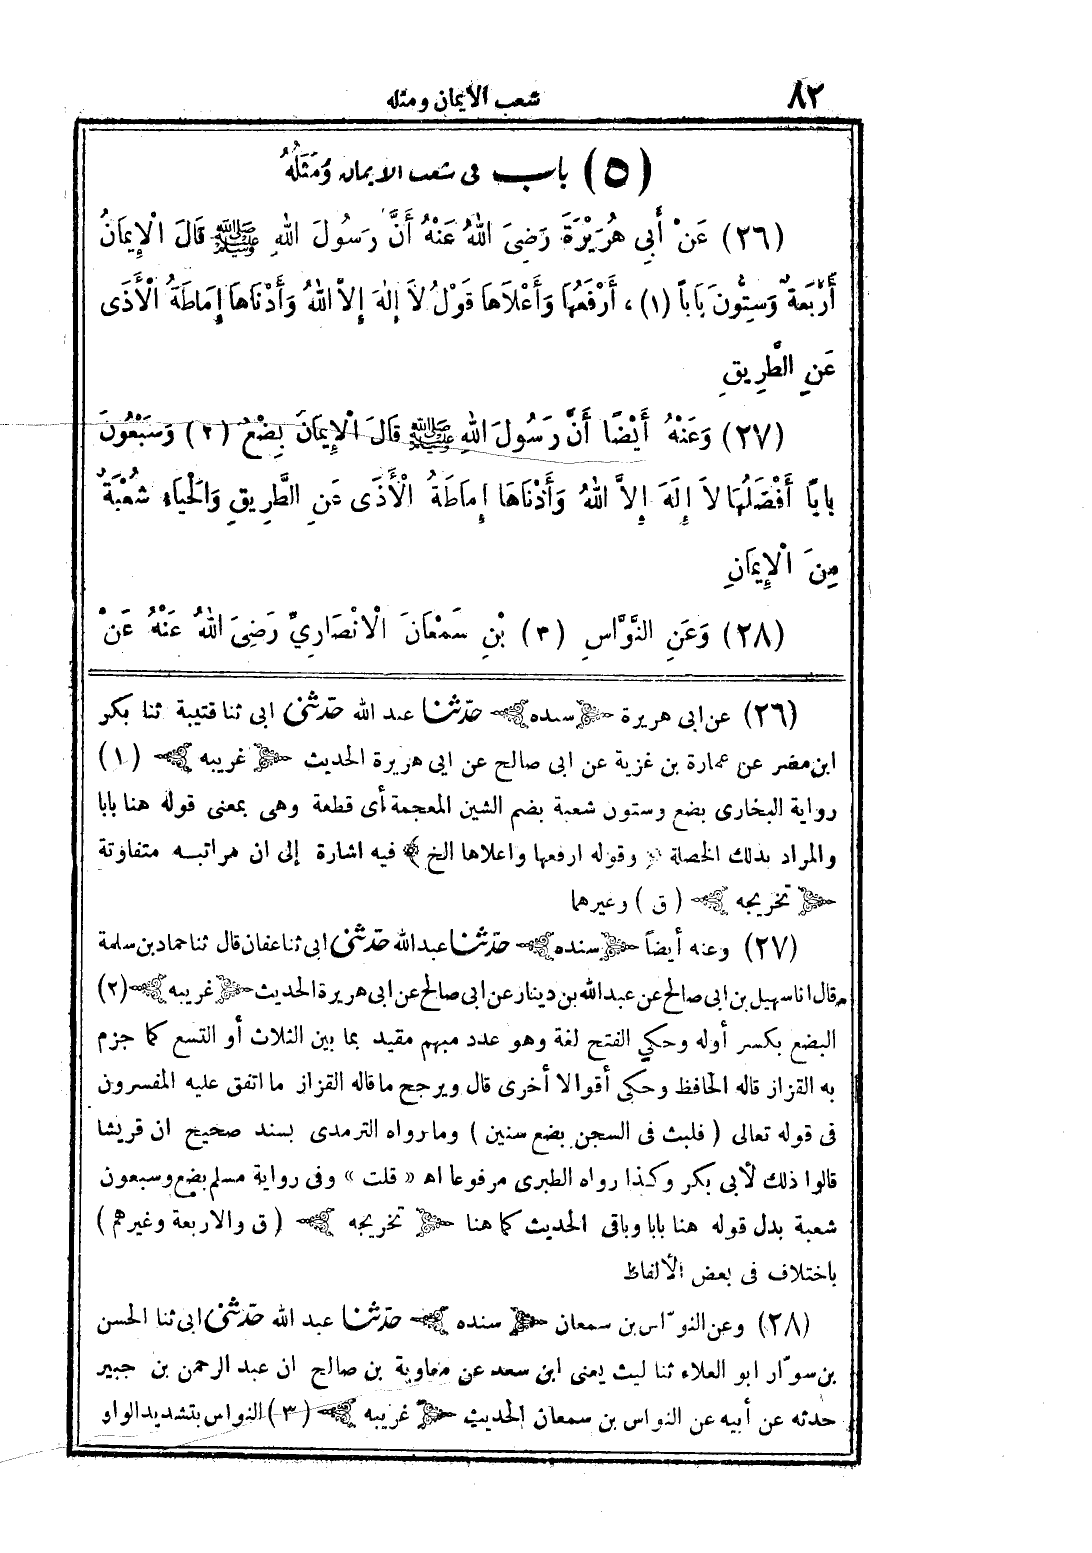 ٨٢
شعب الايمان ومثله
(٥) باب فى شعب الايمان وَمَثَلُهُ
(٢٦) عَنْ أَبِي هُرَيْرَةَ رَضِيَ اللهُ عَنْهُ أَنَّ رَسُولَ اللهِ ﷺ قَالَ الْإِيمَانُ
أَرْبَعَةٌ وَسِتُّونَ بَاباً (١) ، أَرْفَعُهَا وَأَعْلَاهَا قَوْلُ لاَ إِلهَ إِلاَّ اللهُ وَأَدْنَاهَا إِمَاطَةُ الْأَذَى
عَنِ الطَّرِيقِ
(٢٧) وَعَنْهُ أَيْضًا أَنَّ رَسُولَ اللهِ ﷺ قَالَ الْإِيمَانُ بِضْعٌ (٢) وَسَبْعُونَ
بَابًا أَفْضَلُهَا لاَ إِلَهَ إِلاَّ اللهُ وَأَدْنَاهَا إِمَاطَةُ الْأَذَى عَنِ الطَّرِيقِ وَالْحَيَاءُ شُعْبَةٌ
مِنَ الْإِيمَانِ
(٢٨) وَعَنِ النَّوَّاسِ (٣) بْنِ سَمْعَانَ الْانْصَارِيِّ رَضِيَ اللهُ عَنْهُ عَنْ
(٢٦) عن ابى هريرة ﴿سنده﴾ حدّثنا عبد الله حدّثنى ابى ثنا قتيبة ثنا بكر
ابن مضر عن عمارة بن غزية عن ابى صالح عن ابى هريرة الحديث ﴿غريبه﴾ (١)
رواية البخارى بضع وستون شعبة بضم الشين المعجمة أى قطعة وهى بمعنى قوله هنا بابا
والمراد بذلك الخصلة ﴿وقوله ارفعها واعلاها الخ﴾ فيه اشارة إلى ان مراتبه متفاوتة
﴿تخريجه﴾ (ق) وغيرهما
(٢٧) وعنه أيضاً ﴿سنده﴾ حدّثنا عبدالله حدّثنى ابى ثنا عفان قال ثنا حماد بن سلمة
قال انا سهيل بن ابى صالح عن عبدالله بن دينار عن ابى صالح عن ابى هريرة الحديث ﴿غريبه﴾ (٢)
البضع بكسر أوله وحكي الفتح لغة وهو عدد مبهم مقيد بما بين الثلاث أو التسع كما جزم
به القزاز قاله الحافظ وحكى أقوالا أخرى قال ويرجح ما قاله القزاز ما اتفق عليه المفسرون
فى قوله تعالى ( فلبث فى السجن بضع سنين ) وما رواه الترمدى بسند صحيح ان قريشا
قالوا ذلك لأبى بكر وكذا رواه الطبرى مرفوعا اه « قلت » وفى رواية مسلم بضع وسبعون
شعبة بدل قوله هنا بابا وباقى الحديث كما هنا ﴿تخريجه﴾ (ق والاربعة وغيرهم)
باختلاف فى بعض الألفاظ
(٢٨) وعن النوّاس بن سمعان ﴿سنده﴾ حدّثنا عبد الله حدّثنى ابى ثنا الحسن
بن سوّار ابو العلاء ثنا ليث يعنى ابن سعد عن معاوية بن صالح ان عبد الرحمن بن جبير
حدثه عن أبيه عن النواس بن سمعان الحديث ﴿غريبه﴾ (٣) النواس بتشديد الواو